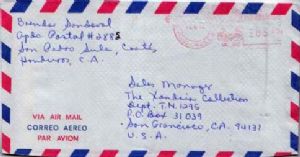 Brenda Sandoval
Apdo Postal #2888
San Pedro Sula, Cortés
Honduras, C.A.
Sales Manager
The Xandria Collection
Dept. TN1295
P.O. Box 31039
San Francisco, CA 94131
U.S.A.
VIA AIR MAIL
CORREO AEREO
PAR AVION